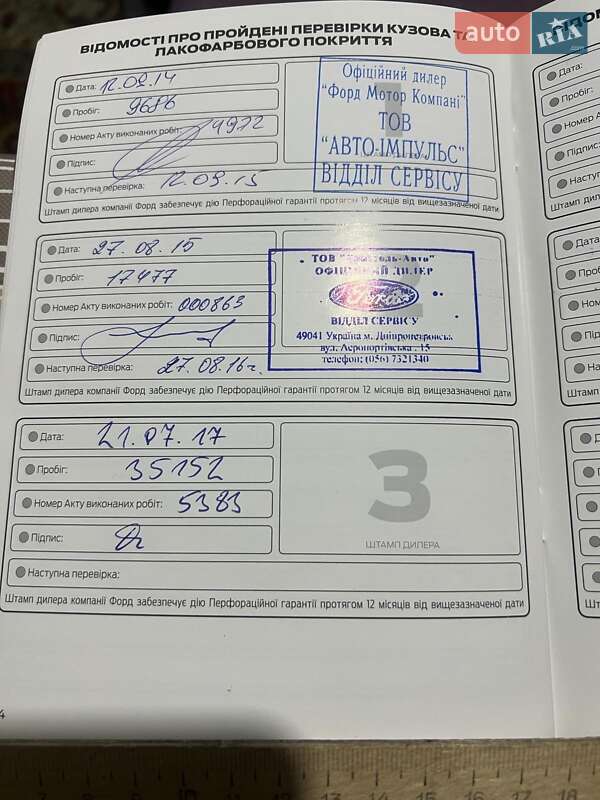 ВІДОМОСТІ ПРО ПРОЙДЕНІ ПЕРЕВІРКИ КУЗОВА ТА
ЛАКОФАРБОВОГО ПОКРИТТЯ
auto RIA
Дата: 12.09.14
Пробіг: 9686
Номер Акту виконаних робіт: 4972
Підпис:
Наступна перевірка: 12.09.15
Офіційний дилер
"Форд Мотор Компані"
ТОВ
"АВТО-ІМПУЛЬС"
ВІДДІЛ СЕРВІСУ
Штамп дилера компанії Форд забезпечує дію Перфораційної гарантії протягом 12 місяців від вищезазначеної дати
Дата: 27.08.15
Пробіг: 17477
Номер Акту виконаних робіт: 000863
Підпис:
Наступна перевірка: 27.08.16г.
ТОВ
ОФІЦІЙНИЙ ДИЛЕР
ВІДДІЛ СЕРВІСУ
49041 Україна м. Дніпропетровськ
вул. Аеропортівська . 15
телефон: (056) 7321340
Штамп дилера компанії Форд забезпечує дію Перфораційної гарантії протягом 12 місяців від вищезазначеної дати
Дата: 21.07.17
Пробіг: 35152
Номер Акту виконаних робіт: 5383
Підпис:
3
ШТАМП ДИЛЕРА
Наступна перевірка:
Штамп дилера компанії Форд забезпечує дію Перфораційної гарантії протягом 12 місяців від вищезазначеної дати
4
Дата:
Пробіг:
Номер А
Підпис:
Наступ
Штамп д
Дата:
Пробіг
Номер
Підпи
На
Штамп
Д
Ш
7 8 9 10 11 12 13 14 15 16 17 18